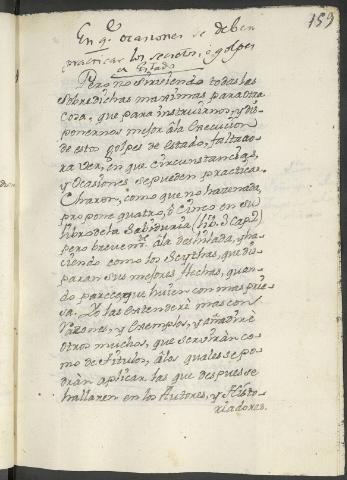 159
En qe. ocasiones se deben
practicar los secretos, o golpes
de Estado
Pero no sirviendo todas las
sobredichas maximas para otra
cosa, que para instruirnos, y dis-
ponernos mejor âla Execucion
de estos golpes de estado, falta ao-
ra Ver, en que circunstancias,
y Ocasiones se pueden practicar.
Charon, como que no haze nada,
propone quatro, ô Cinco en su
libro de la Sabiduria (lib. 3 cap. 2)
pero brevemte. ala deshilada, y ha-
ciendo como los Scythas, que dis-
paran sus mejores flechas, quan-
do parece que huien con mas prie-
sa. Yo las extenderè mas con
razones, y Exemplos, y añadirè
otros muchos, que serviràn co-
mo de titulos, âlos quales se po-
dràn aplicar las que despues se
hallaren en los Autores, y Histo-
riadores.